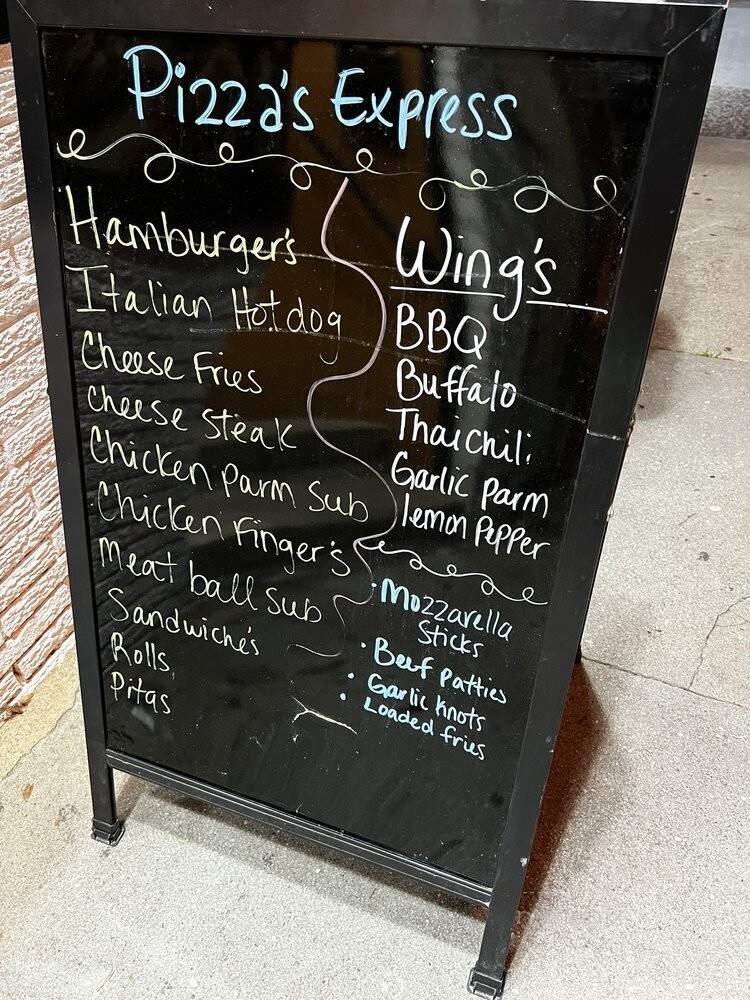 Pizza's Express
Hamburger's
Italian Hotdog
Cheese Fries
Cheese Steak
Chicken Parm Sub
Chicken Finger's
Meat ball Sub
Sandwiche's
Rolls
Pitas
Wing's
BBQ
Buffalo
Thai Chili
Garlic Parm
lemon Pepper
• Mozzarella
Sticks
• Beef Patties
• Garlic Knots
• Loaded fries